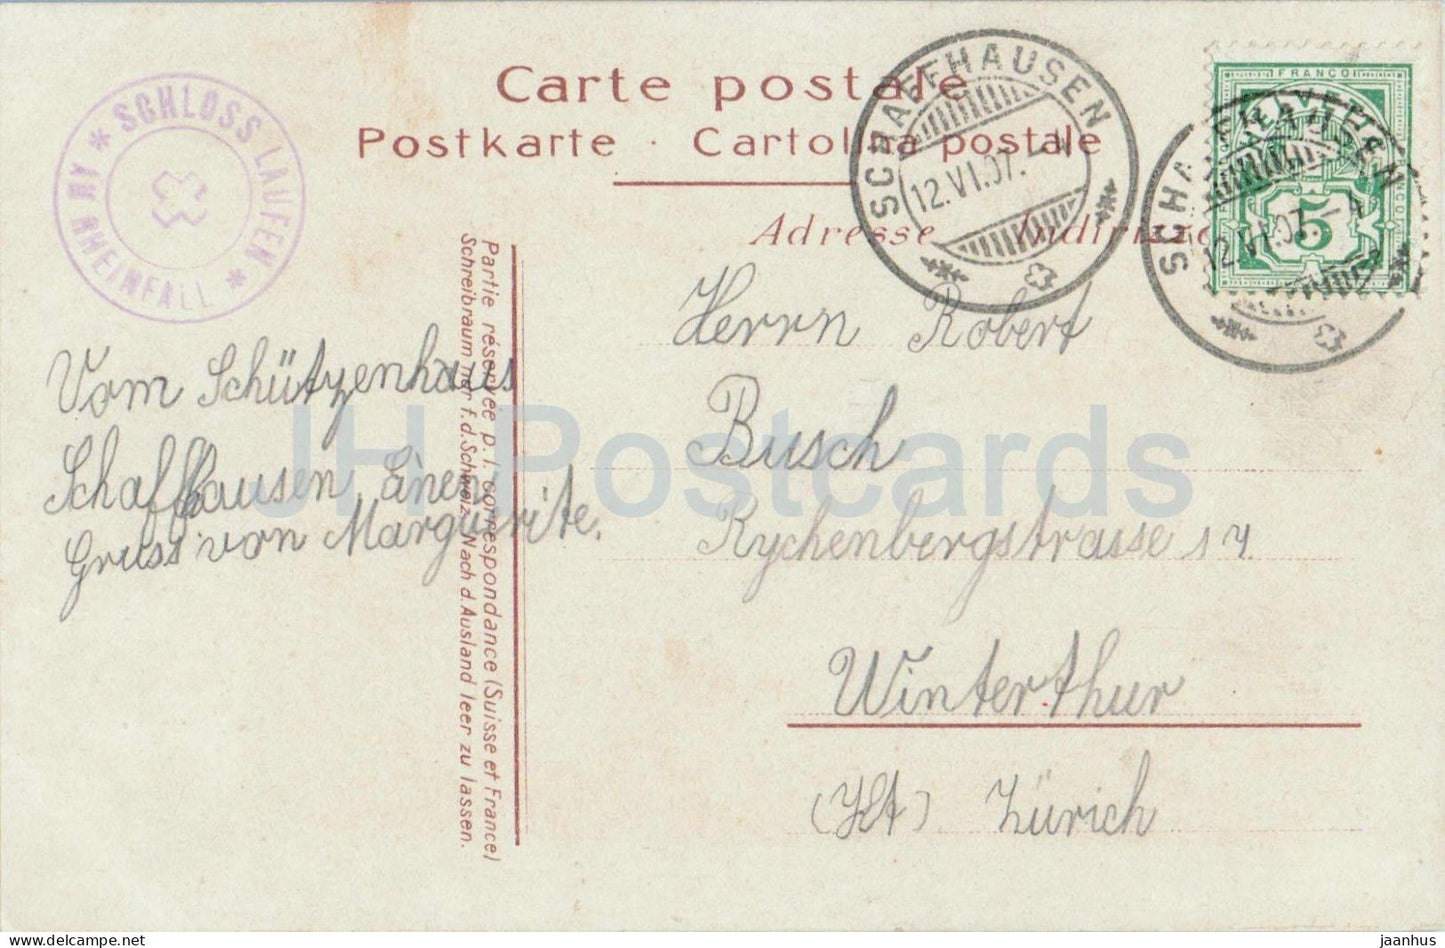 Carte postale
Postkarte · Cartolina postale
Adresse Indirizzo
* SCHLOSS LAUFEN *
AM RHEINFALL
SCHAFFHAUSEN
12.VI.07.
SCHAFFHAUSEN
12.VI.07.-4
FRANCO
5
Partie réservée p. l. correspondance (Suisse et France)
Schreibraum nur f. d. Schweiz. Nach d. Ausland leer zu lassen.
Vom Schützenhaus
Schaffhausen Einen
Gruss von Marguerite.
Herrn Robert
Busch
Rychenbergstrasse 14
Winterthur
(Kt) Zürich
JH Postcards
delcampe.net
jaanhus